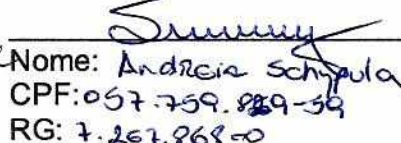 Nome: Andreia Schypula
CPF: 057.759.889-59
RG: 7.267.868-0